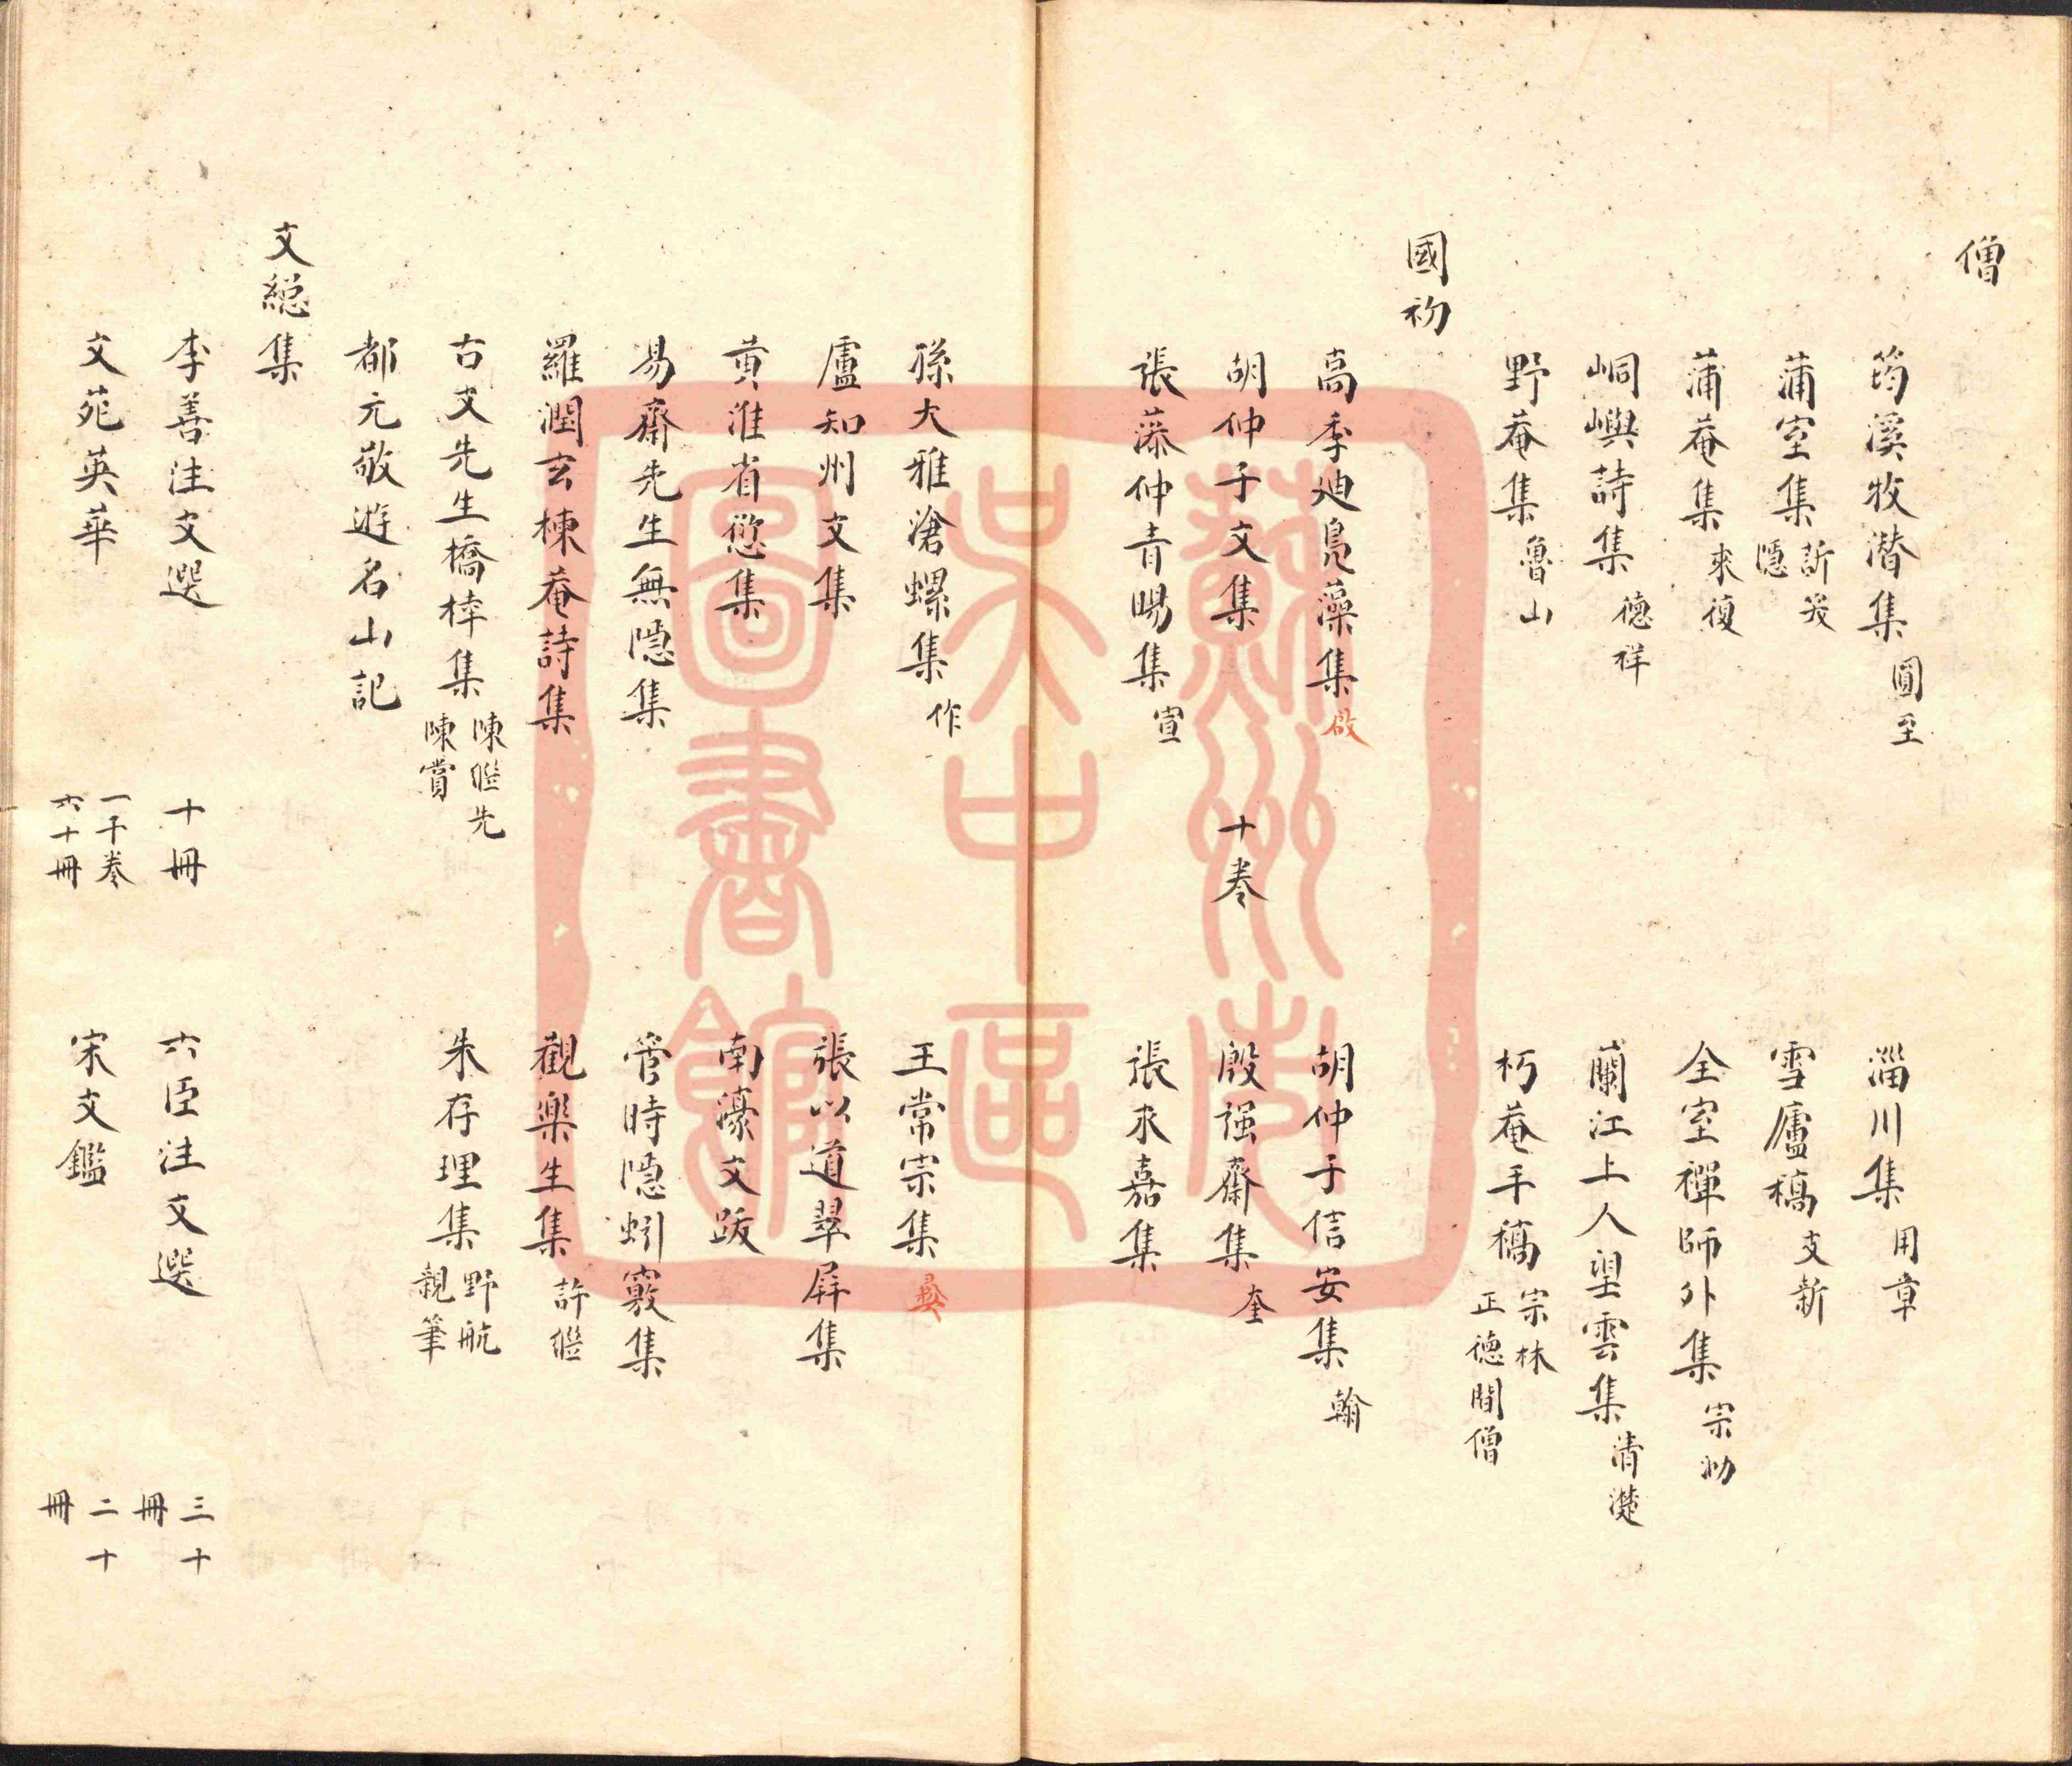 僧
筠溪牧潛集 圓至 淄川集 用章
蒲室集 訢笑隱 雪廬稿 支新
蒲菴集 來復 全室禪師外集 宗泐
峒嶼詩集 德祥 蘭江上人望雲集 清濋
野菴集 魯山 朽菴手稿 宗林 正德間僧
國初
高季迪鳧藻集 啟 胡仲子信安集 翰
胡仲子文集 十卷 殷强齋集 奎
張藻仲青暘集 宣 張來嘉集
孫大雅滄螺集 作 王常宗集 彝
盧知州文集 張以道翠屏集
黃淮省愆集 南濠文跋
易齋先生無隱集 管時隱蚓竅集
羅潤玄棟菴詩集 觀樂生集 許繼
古文先生橋梓集 陳繼先 陳賞 朱存理集 野航 親筆
都元敬遊名山記
文総集
李善注文選 十冊 六臣注文選 三十冊
文苑英華 一千卷 六十冊 宋文鑑 二十冊
蘇州市
吳中區
圖書館